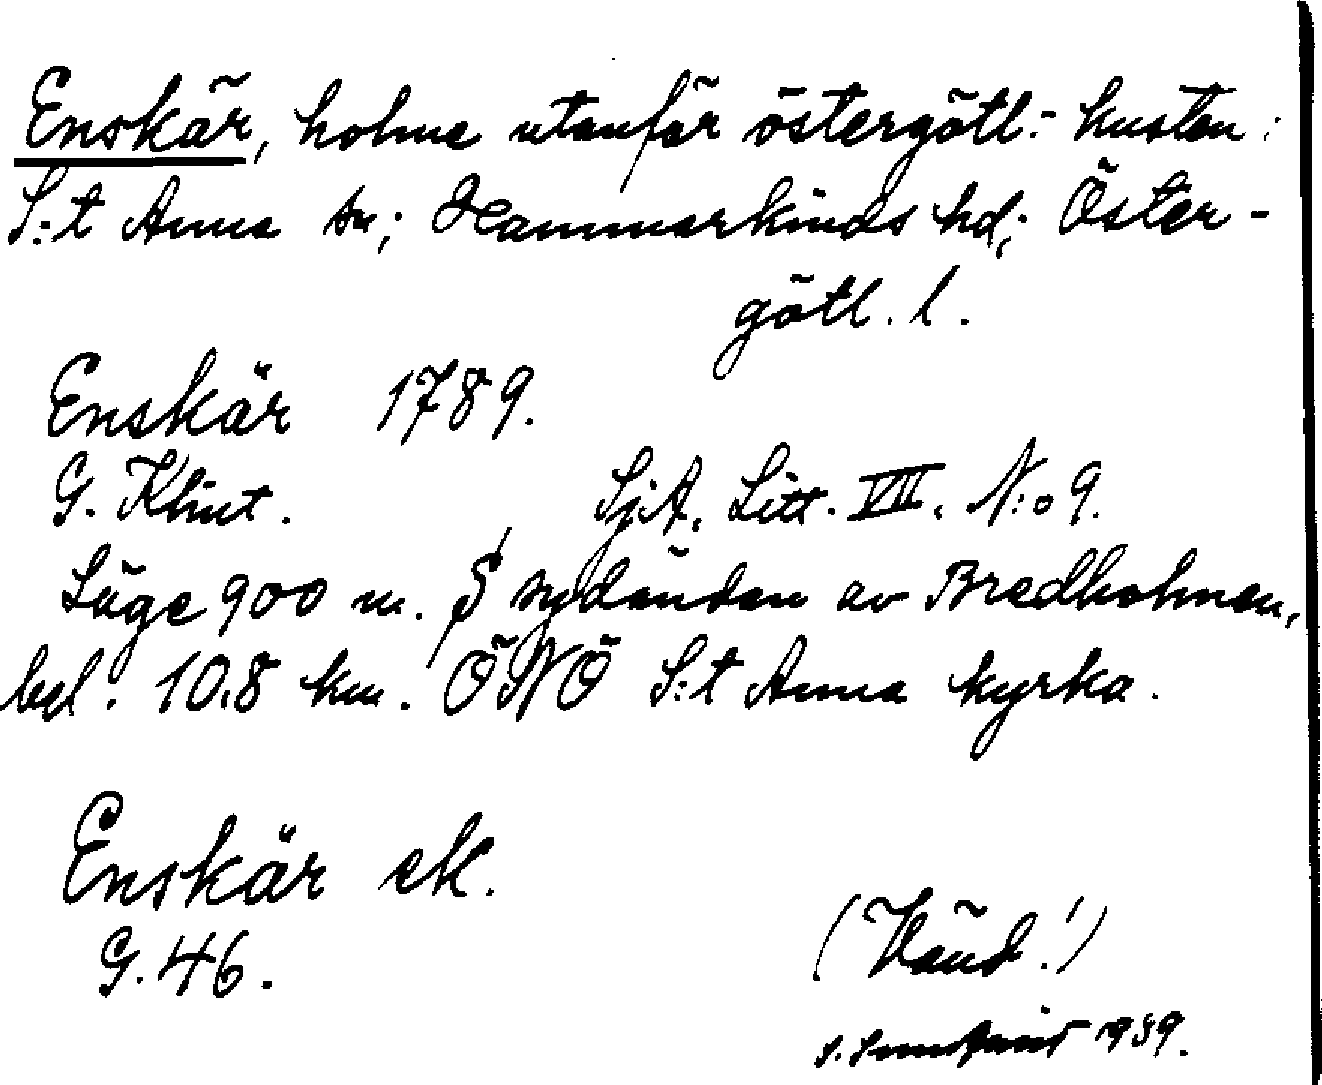 Enskär, holme utanför östergötl:- kusten:
S:t Anna sn; Hammarkinds hd; Öster-
götl. l.
Enskär 1789.
G. Klint. SjA. Litt. VII. N:o 9.
Läge 900 m. S sydändan av Bredholmen,
bel. 10,8 km. ÖNÖ S:t Anna kyrka.
Enskär ek.
G. 46.
(Vänd!)
S. 1939.